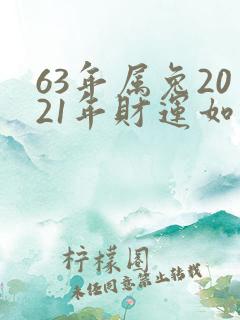 63年属兔20
21年财运如
柠檬圈
未经同意禁止转载